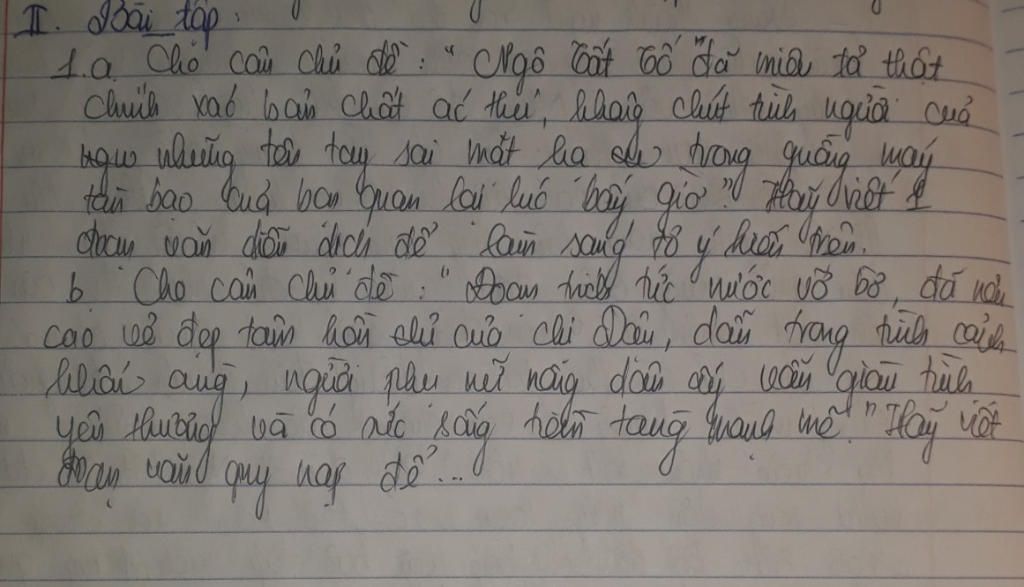 II. Bài tập:
1.a Cho câu chủ đề: "Ngô Tất Tố đã miêu tả thật
chính xác bản chất ác thú, không chút tình người của
những tên tay sai mất trong guồng máy
tàn bạo của bọn quan lại lúc bấy giờ". Hãy viết 1
đoạn văn diễn dịch để làm sáng tỏ ý kiến trên.
b Cho câu chủ đề: "Đoạn trích tức nước vỡ bờ, đã nêu
cao vẻ đẹp tâm hồn của chị Dậu, dẫu trong tình cảnh
người phụ nữ nông dân ấy vẫn giàu tình
yêu thương và có sức sống tiềm tàng mạnh mẽ." Hãy viết
đoạn văn quy nạp để...